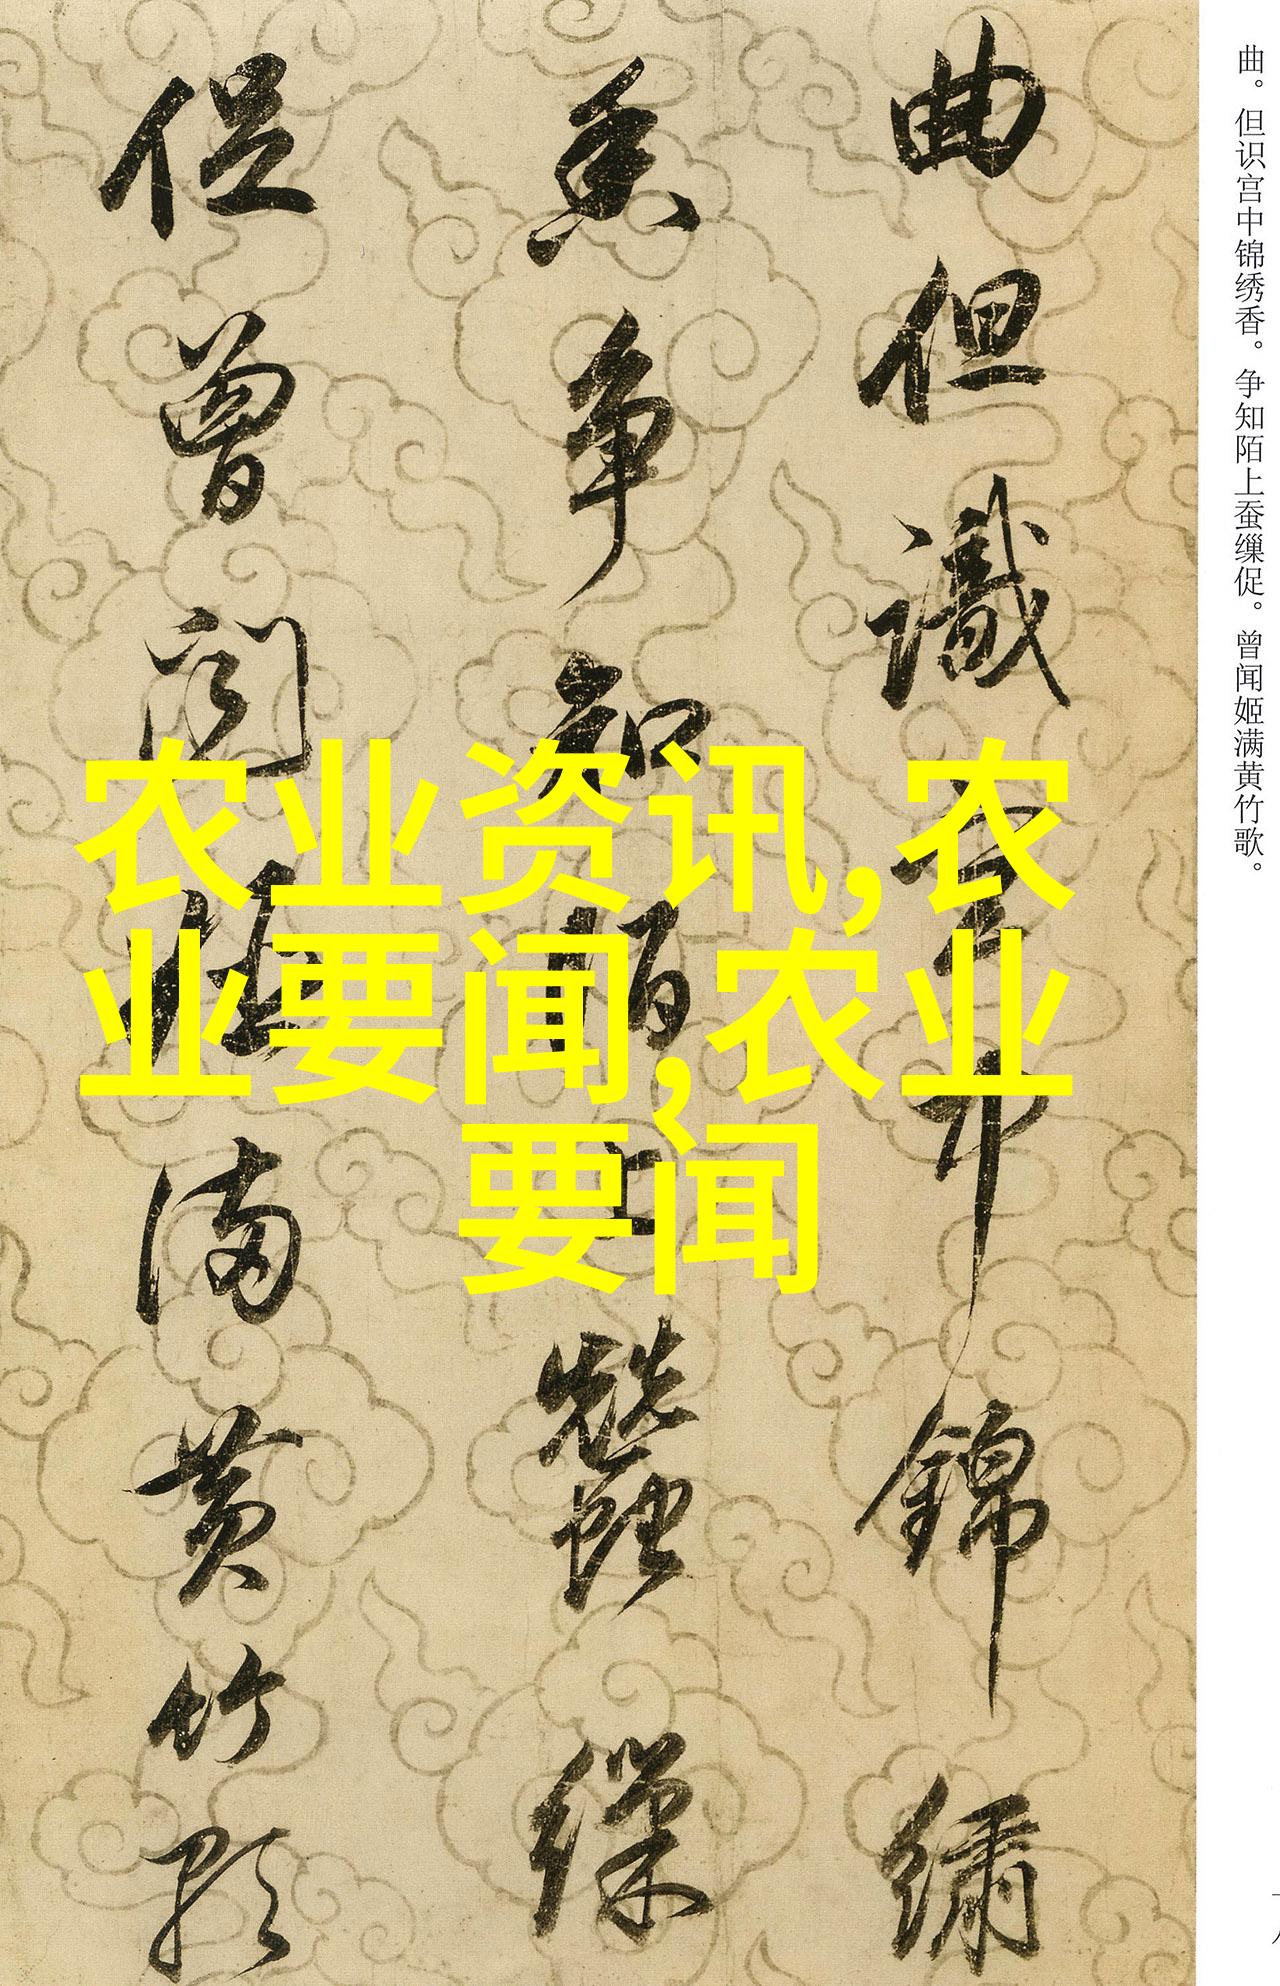 曲。但识宫中锦绣香。争知陌上蚕缫促。曾闻姬满黄竹歌。
曲但識宮中錦繡
香争知陌上蠶繅
促曾闻姬满黄竹歌
农业资讯,农
业要闻,农业
要闻